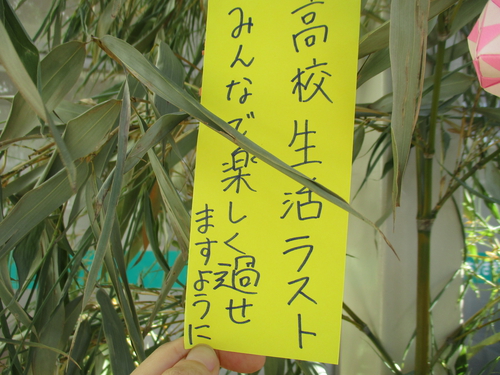 高校生活ラスト
みんなで楽しく過せ
ますように